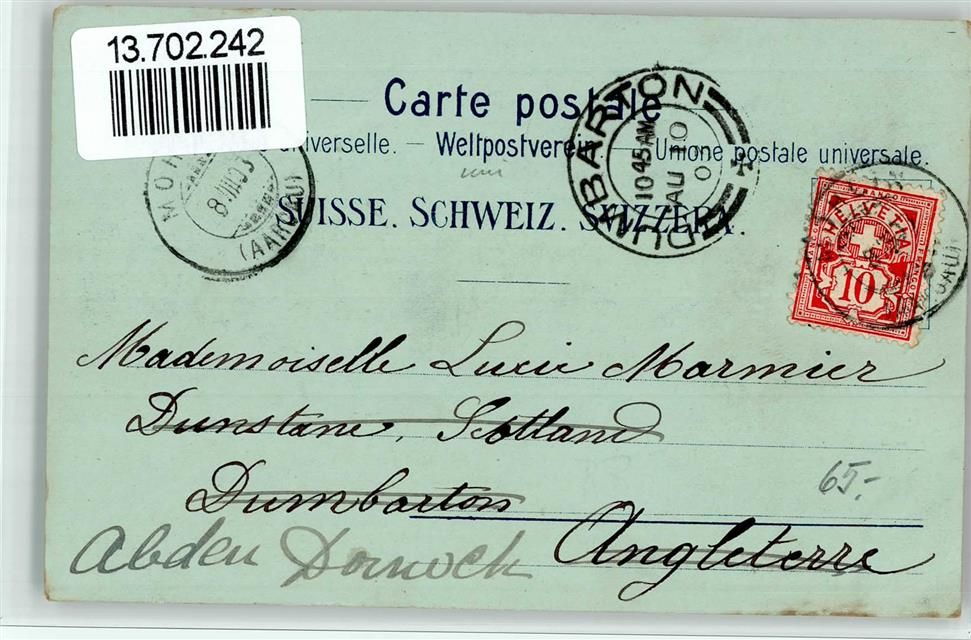 13.702.242
Carte postale
universelle. — Weltpostverein — Unione postale universale.
SUISSE. SCHWEIZ. SVIZZERA.
8.VIII.03
(AARGAU)
DUMBARTON
1045AM
AU 10
0
HELVETIA
FRANCO
10
Mademoiselle Lucie Marmier
Dunstane, Scotland
Dumbarton
Angleterre
65.-
Abden Dornock